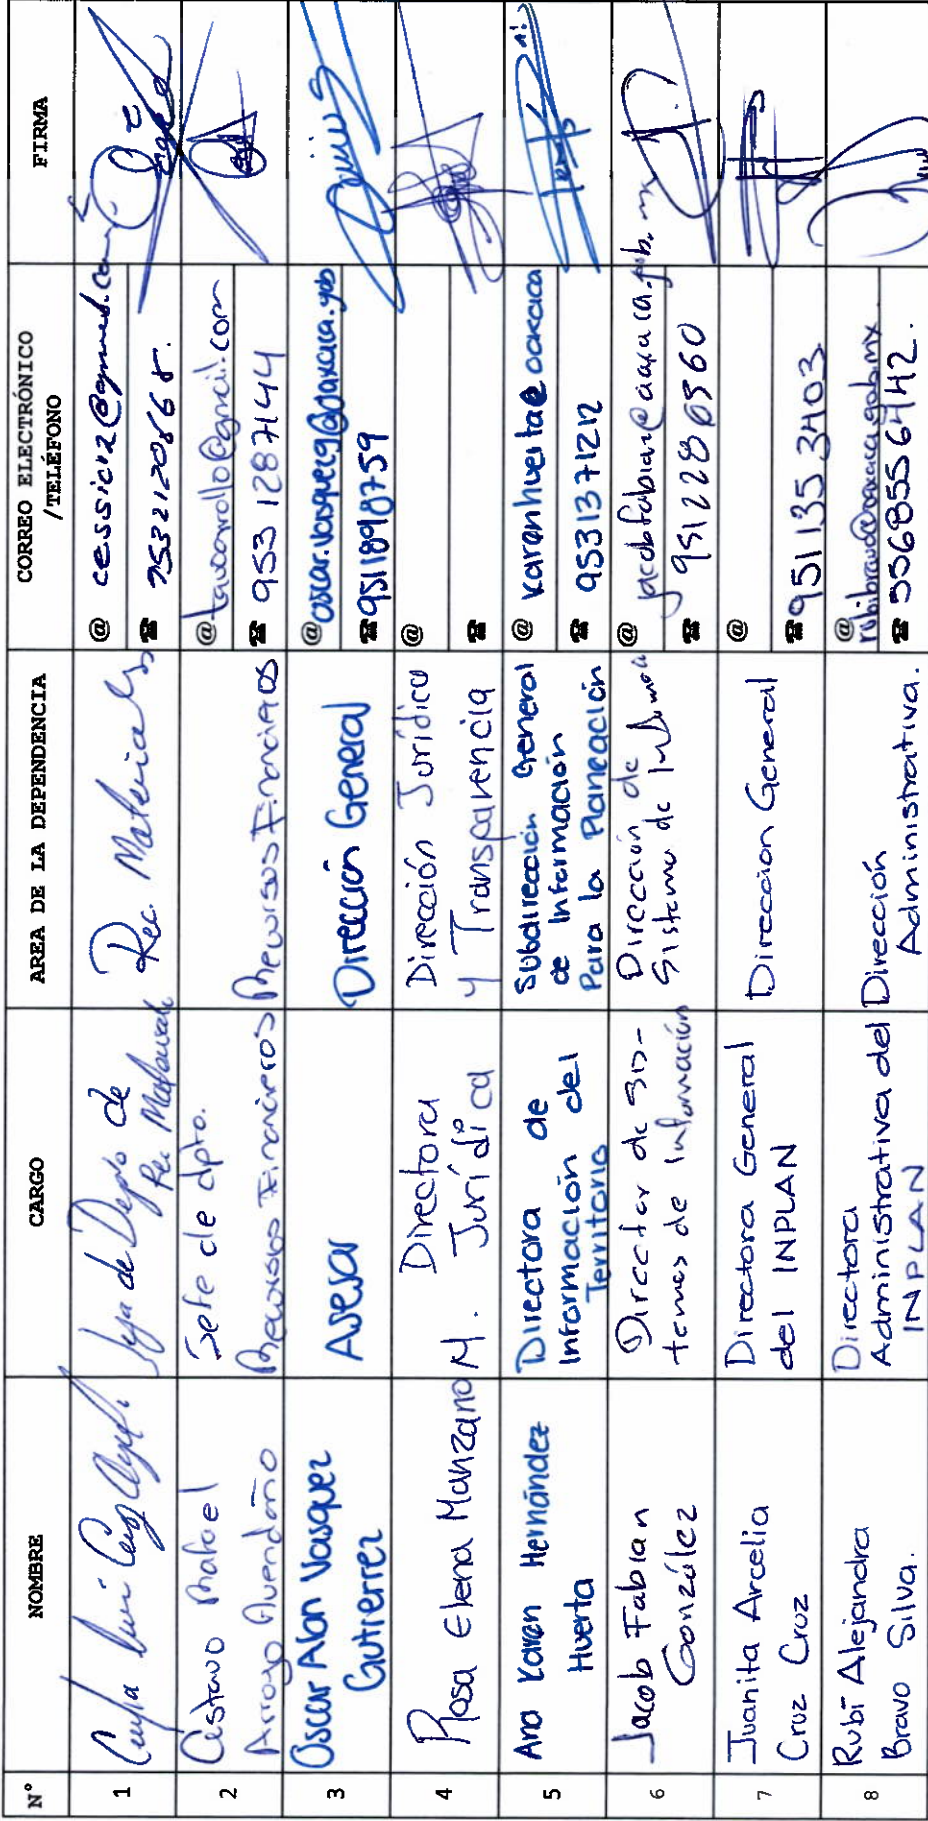 N° NOMBRE CARGO AREA DE LA DEPENDENCIA CORREO ELECTRÓNICO /TELÉFONO FIRMA
1
Jefa de Depto de
Rec. Materiales
Rec. Materiales
@
☎ 9532120866 8.
2
Gustavo Rafael
Arroyo Avendaño
Jefe de dpto.
Recursos Financieros
Recursos Financieros
@ tavoarrollo@gmail.com
☎ 953 128 7144
3
Oscar Alan Vasquez
Gutierrez
Asesor
Dirección General
@ oscar.vasquezg@oaxaca.gob
☎ 9511898759
4
Rosa Elena Manzano M.
Directora
Jurídica
Dirección Jurídica
y Transparencia
@
☎
5
Ana Karen Hernández
Huerta
Directora de
Información del
Territorio
Subdirección General
de Información
Para la Planeación
@ karanhuerta@oaxaca
☎ 9531371212
6
Jacob Fabian
González
Director de Sis-
temas de Información
Dirección de
Sistema de
@ jacobfabian@oaxaca.gob.mx
☎ 9512286560
7
Juanita Arcelia
Cruz Cruz
Directora General
del INPLAN
Direccion General
@
☎ 951 135 3403
8
Rubí Alejandra
Bravo Silva.
Directora
Administrativa del
INPLAN
Dirección
Administrativa.
@
rubibravo@oaxaca.gob.mx
☎ 5568556442.